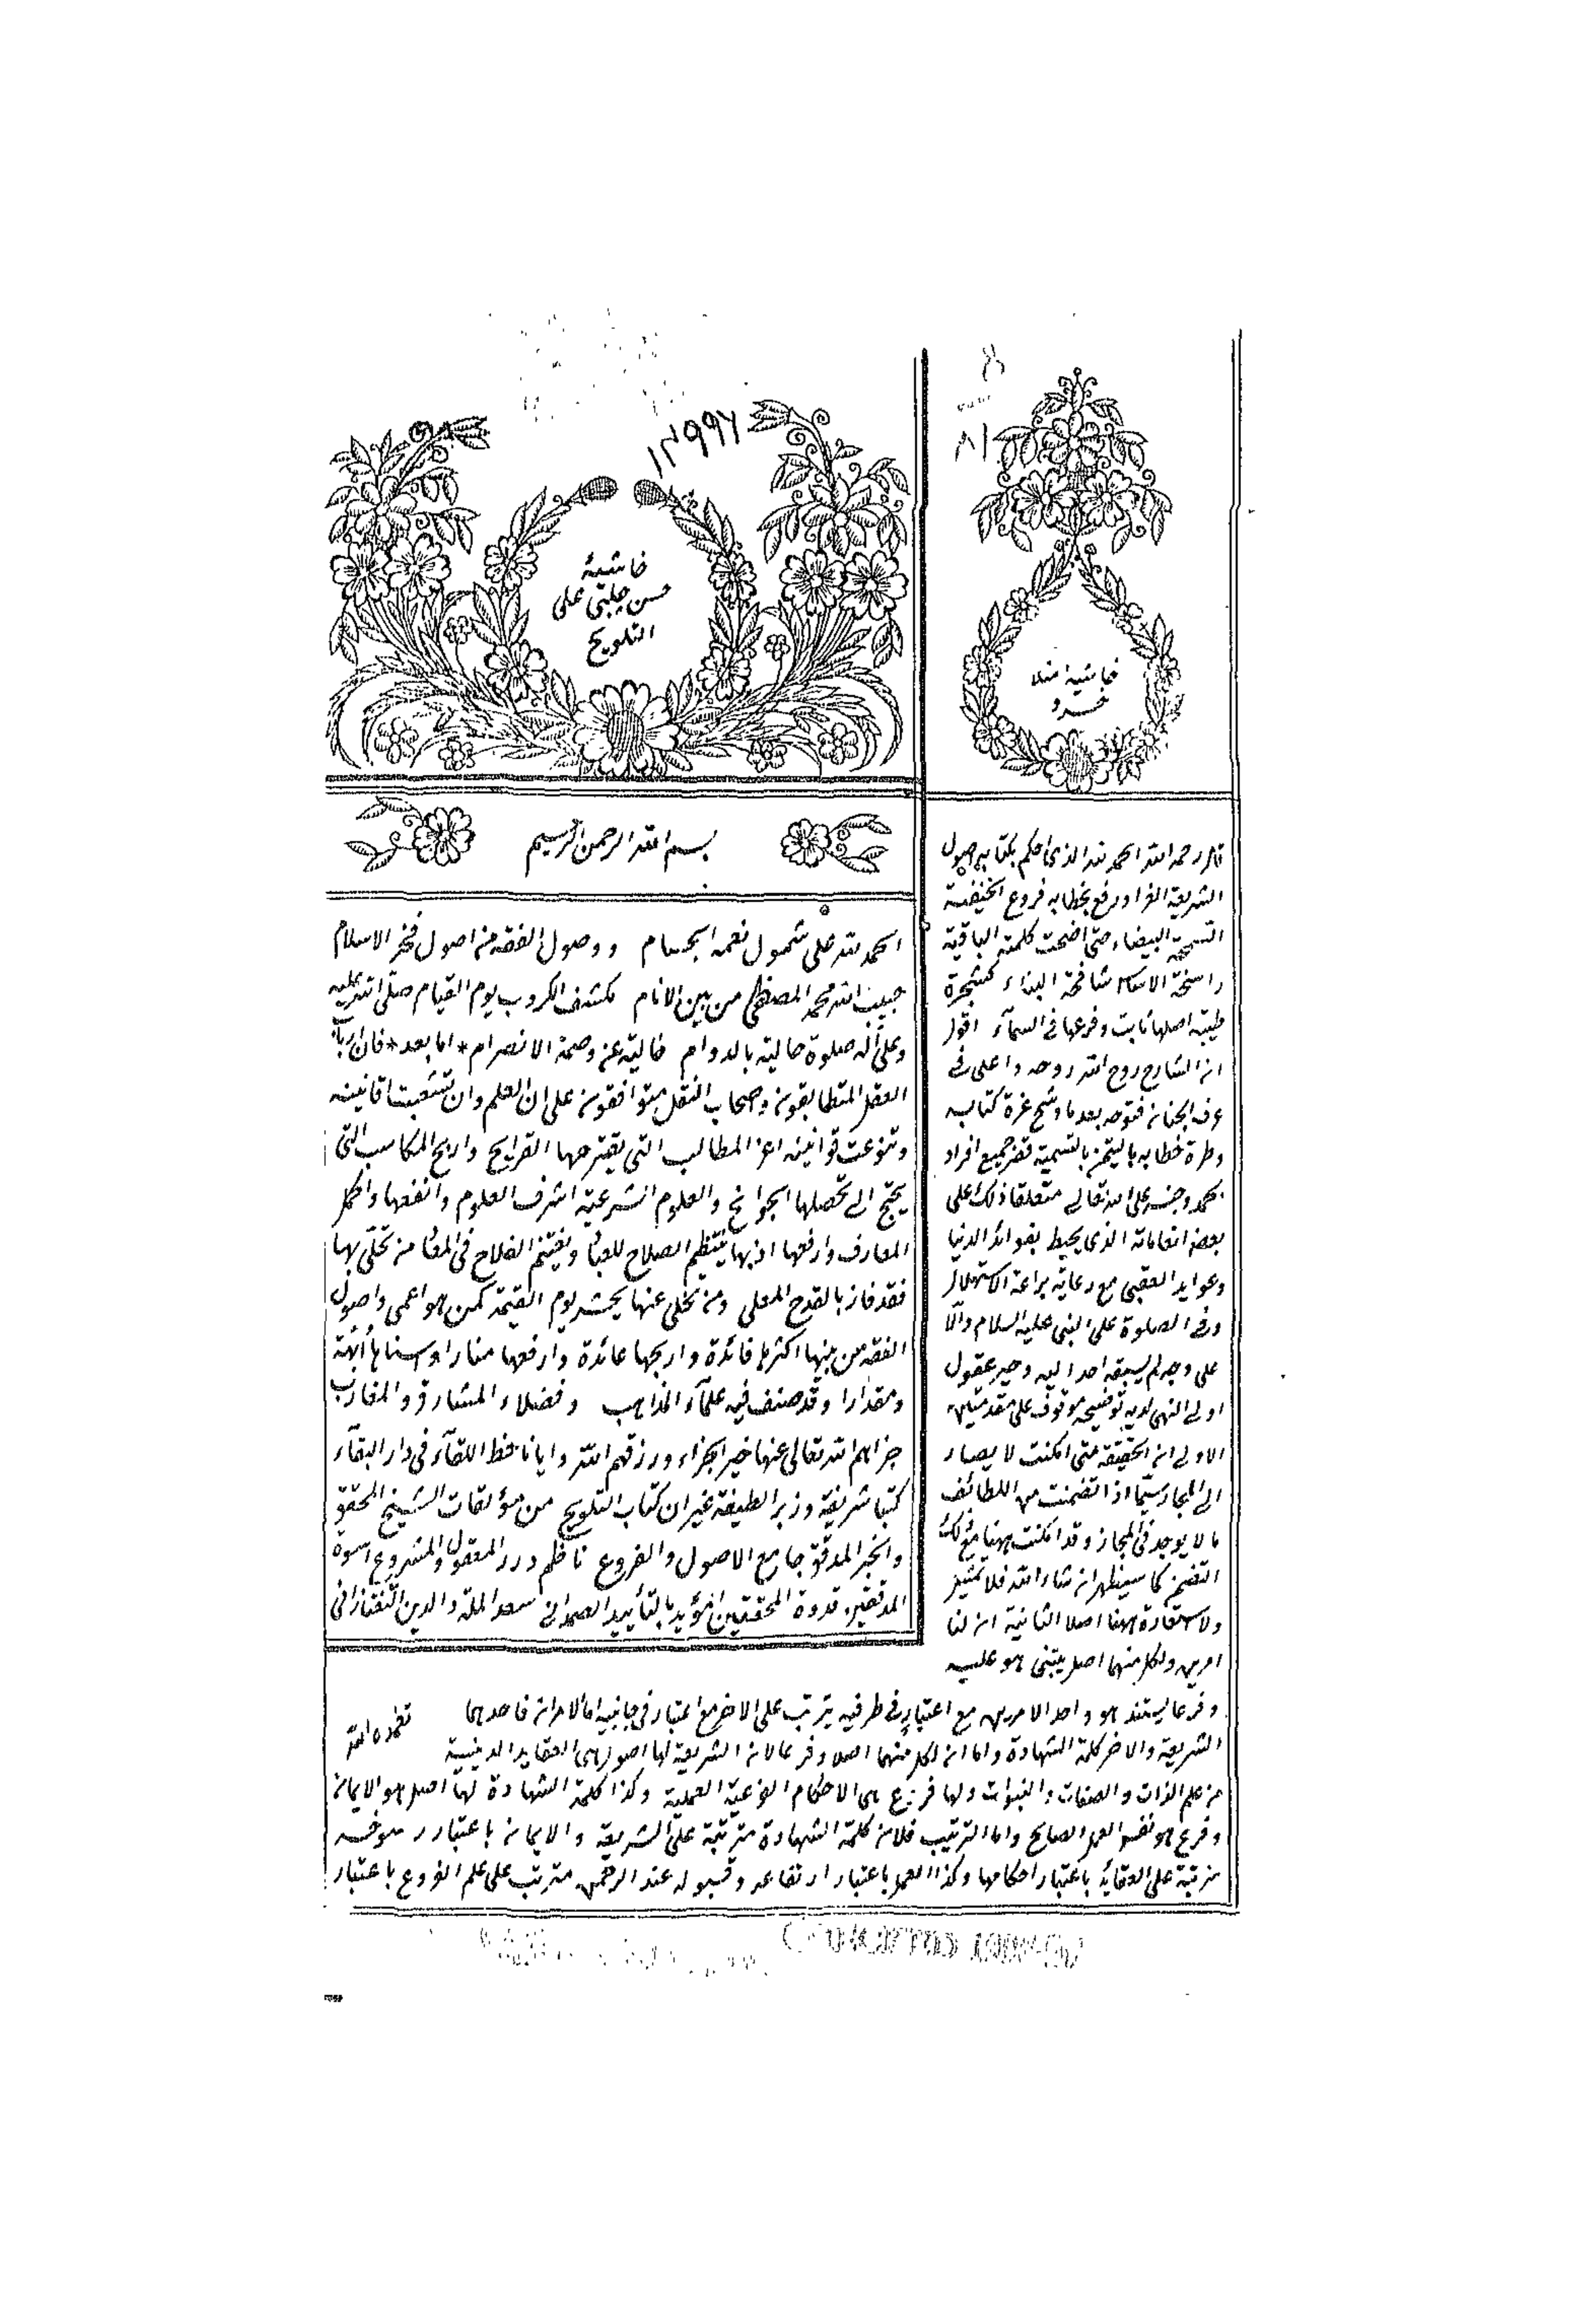 ١٣٩٩٦
٨١
حاشية
حسن چلبى على
التلويح
حاشية منلا
خسرو
بسم الله الرحمن الرحيم
الحمد لله على شمول نعمه الجسام ووصول الفقه من اصول فخر الاسلام
حبيب الله محمد المصطفى من بين الانام مكشف الكروب يوم القيام صلى الله عليه
وعلى آله صلوة حالية بالدوام خالية عن وصمة الانصرام * اما بعد * فان ارباب
العقل المتطابقون واصحاب النقل متوافقون على ان العلم وان تشعبت افانينه
وتنوعت قوانينه اعز المطالب التى يقترحها القرايح واربح المكاسب التى
يحتج الى تحصلها الجوانح والعلوم الشرعية اشرف العلوم وانفعها واكمل
المعارف وارفعها اذ بها ينتظم الصلاح للعباد ويغتنم الفلاح فى المعاد من تحلى بها
فقد فاز بالقدح المعلى ومن تخلى عنها يحشر يوم القيمة كمن هو اعمى واصول
الفقه من بينها اكثرها فائدة واربحها عائدة وارفعها منارا واسناها ابهة
ومقدارا وقد صنف فيه علماء المذاهب وفضلاء المشارق والمغارب
جزاهم الله تعالى عنها خير الجزاء ورزقهم الله وايانا حظ اللقاء فى دار البقاء
كتبا شريفة وزبرا لطيفة غير ان كتاب التلويح من مؤلفات الشيخ المحقق
والحبر المدقق جامع الاصول والفروع ناظم درر المعقول والمشروع اسوة
المدققين قدوة المحققين المؤيد بالتأييد الصمدانى سعد الملة والدين التفتازانى
تغمده الله
قال رحمه الله الحمد لله الذى احكم بكتابه اصول
الشريعة الغرا ورفع بخطابه فروع الحنيفية
السمحة البيضاء حتى اضحت كلمته الباقية
راسخة الاساس شامخة البناء كشجرة
طيبة اصلها ثابت وفرعها فى السماء اقول
ان الشارح روح الله روحه واعلى فى
غرف الجنان فتوحه بعد ما وشح غرة كتابه
وطرة خطابه بالتيمن بالتسمية قصر جميع افراد
الحمد وجنسه على الله تعالى متعلقا ذلك على
بعض انعاماته الذى يحيط بفوائد الدنيا
وعوايد العقبى مع رعاية براعة الاستهلال
وفى الصلوة على النبى عليه السلام والآل
على وجه لم يسبقه احد اليه وحير عقول
اولى النهى لديه توضيحه موقوف على مقدمتين
الاولى ان الحقيقة متى امكنت لا يصار
الى المجاز سيما اذا تضمنت من اللطائف
ما لا يوجد فى المجاز وقد امكنت ههنا مع ذلك
التضمن كما سيظهر ان شاء الله فلا تمثيل
ولا استعارة ههنا اصلا الثانية ان لنا
امرين ولكل منهما اصل يبتنى هو عليه
وفرعا يستند هو واحد الامرين مع اعتبار فى طرفيه يترتب على الاخر مع اعتبار فى جانبيه اما الامران فاحدهما
الشريعة والاخر كلمة الشهادة واما ان لكل منهما اصلا وفرعا لان الشريعة لها اصول هى العقايد الدينية
من علم الذات والصفات والنبوات ولها فروع هى الاحكام الفرعية العملية وكذا كلمة الشهادة لها اصل هو الايمان
وفرع هو نفس العمل الصالح واما الترتيب فلان كلمة الشهادة مترتبة على الشريعة والايمان باعتبار رسوخه
مترتبة على العقائد باعتبار احكامها وكذا العمل باعتبار ارتفاعه وقبوله عند الرحمن مترتب على علم الفروع باعتبار